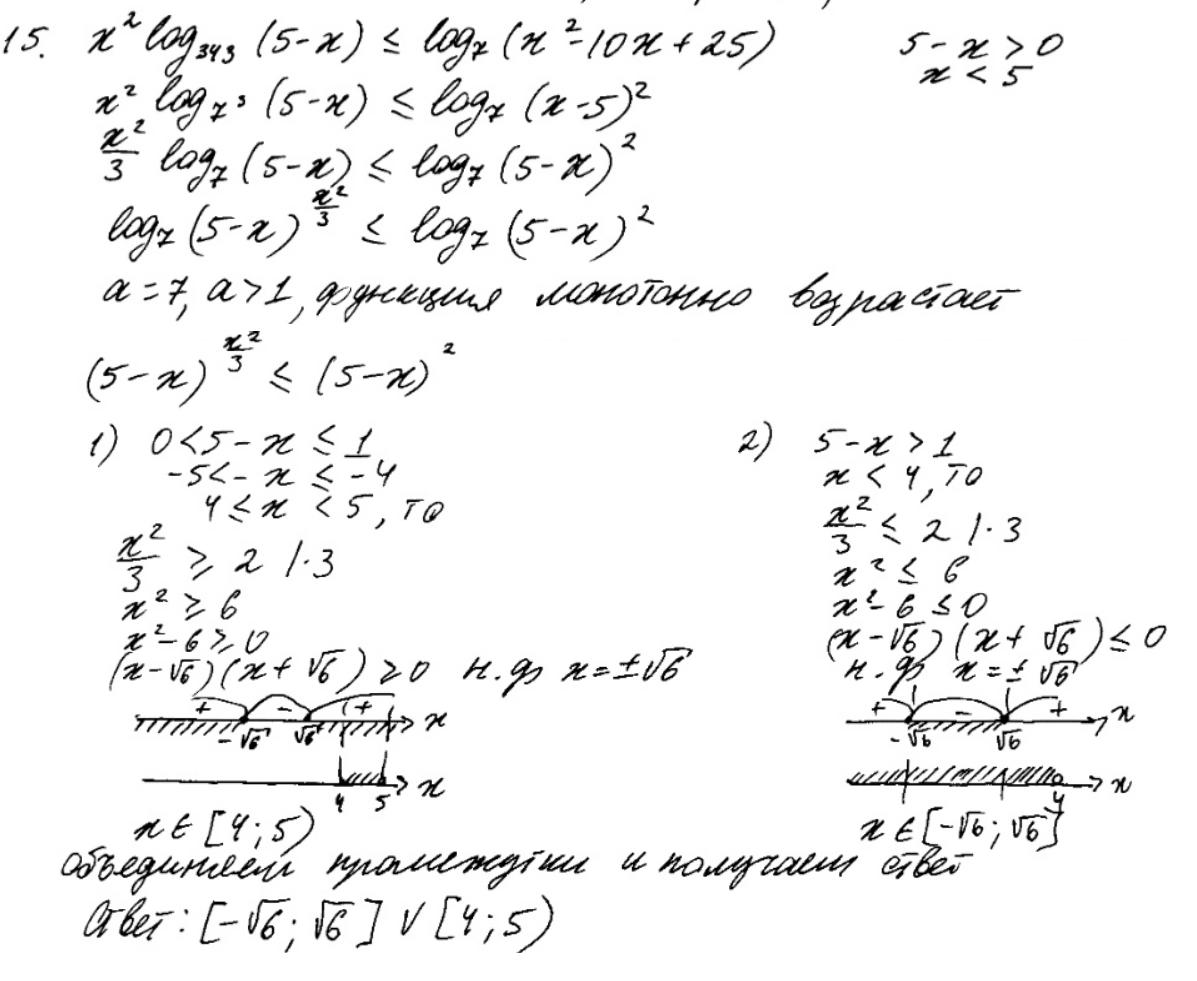 15. x² log₃₄₃ (5-x) ≤ log₇ (x²-10x+25)
5-x > 0
x < 5
x² log₇³ (5-x) ≤ log₇ (x-5)²
x²/3 log₇ (5-x) ≤ log₇ (5-x)²
log₇ (5-x)^(x²/3) ≤ log₇ (5-x)²
a=7, a>1, функция монотонно возрастает
(5-x)^(x²/3) ≤ (5-x)²
1) 0<5-x ≤ 1
-5<-x ≤ -4
4≤x <5, то
x²/3 ≥ 2 |·3
x² ≥ 6
x²-6≥0
(x-√6)(x+√6) ≥0 н.ф x=±√6
+ - + x
-√6 √6
x
4 5
x∈[4;5)
2) 5-x>1
x<4, то
x²/3 ≤ 2 |·3
x² ≤ 6
x²-6 ≤0
(x-√6)(x+√6) ≤ 0
н.ф x=±√6
+ - + x
-√6 √6
x
4
x∈[-√6;√6]
объединяем промежутки и получаем ответ
Ответ: [-√6;√6] ∨ [4;5)